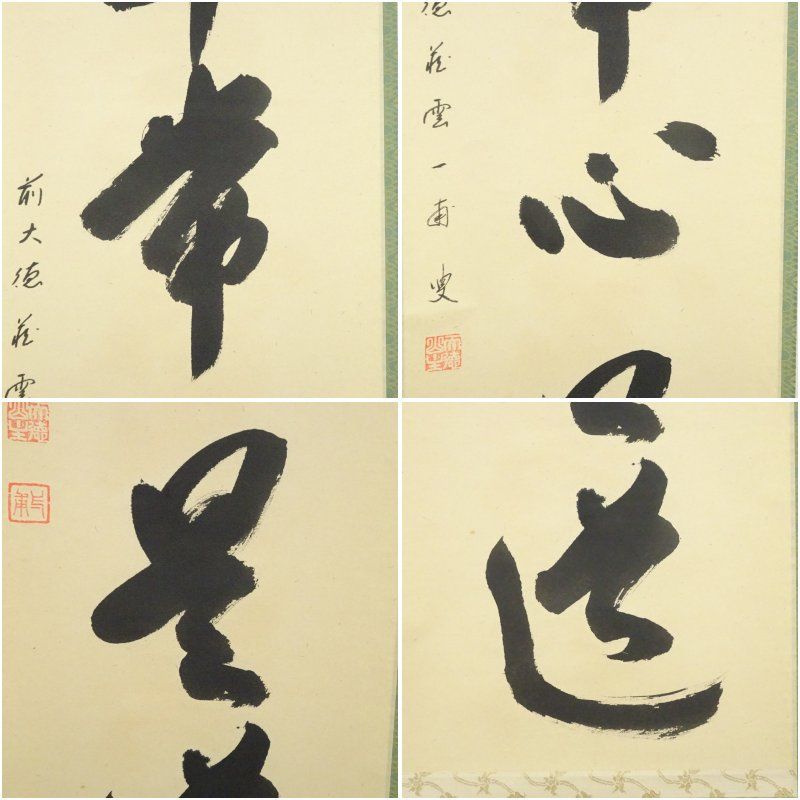 常
前大徳藏雲
心
徳藏雲一甫叟
是
道